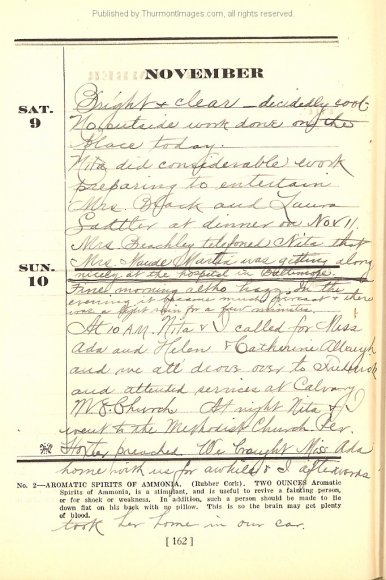 Published by ThurmontImages.com, all rights reserved.
NOVEMBER
SAT.
9
Bright & clear — decidedly cool
No outside work done on the
place today.
Nita did considerable work
preparing to entertain
Mrs. Black and Laura
Sadtler at dinner on Nov 11.
Mrs Beachley telefoned Nita that
Mrs. Maude Martin was getting along
nicely at the hospital in Baltimore.
SUN.
10
Fine morning altho hazy. In the
evening it became much & there
was a light rain for a few minutes.
At 10 A.M. Nita & I called for Miss
Ada and Helen & Catherine
and we all drove over to Frederick
and attended services at Calvary
M.E. Church At night Nita & I
went to the Methodist Church Rev.
preached. We brought Miss Ada
home with us for awhile & I afterwards
No. 2—AROMATIC SPIRITS OF AMMONIA. (Rubber Cork). TWO OUNCES Aromatic
Spirits of Ammonia, is a stimulant, and is useful to revive a fainting person,
or for shock or weakness. In addition, such a person should be made to lie
down flat on his back with no pillow. This is so the brain may get plenty
of blood.
took her home in our car.
[ 162 ]